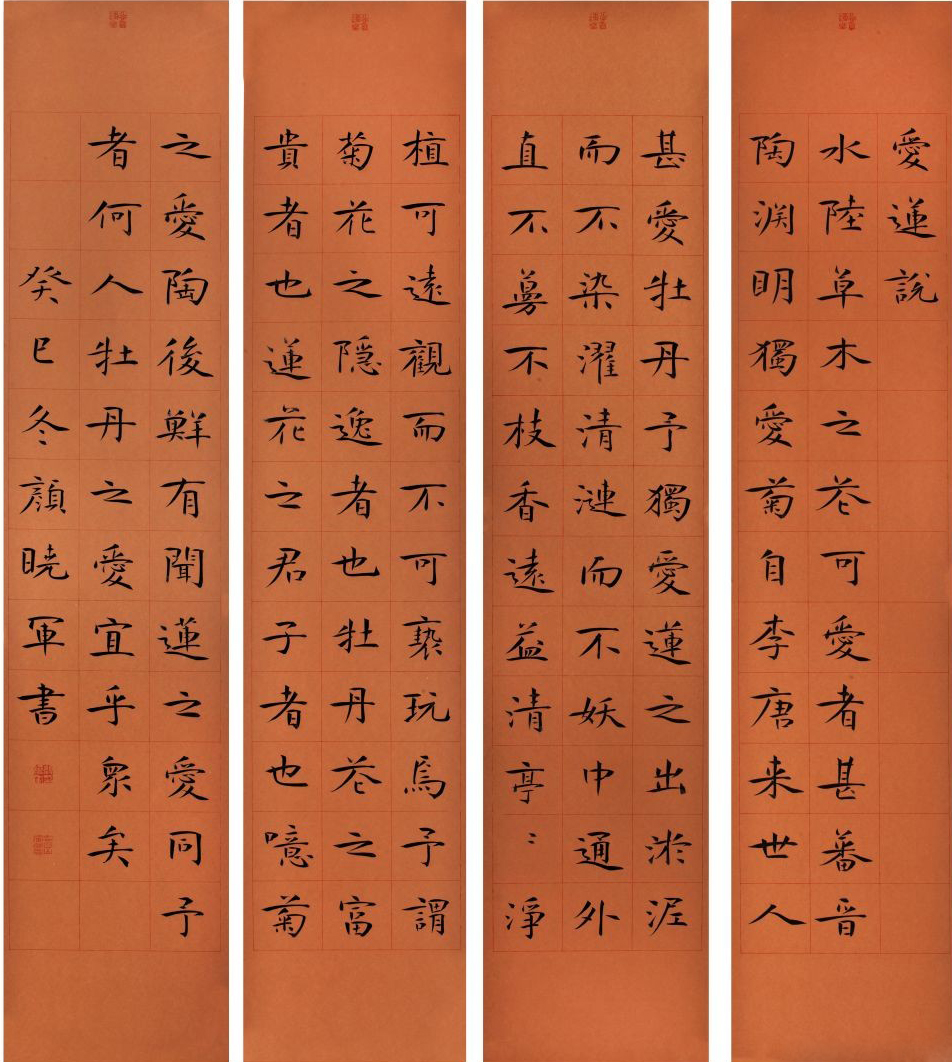 愛蓮説
水陸草木之花可愛者甚蕃晋
陶渊明獨愛菊自李唐来世人
甚愛牡丹予獨愛蓮之出淤泥
而不染濯清漣而不妖中通外
直不蔓不枝香遠益清亭〻淨
植可遠觀而不可褻玩焉予謂
菊花之隠逸者也牡丹花之富
貴者也蓮花之君子者也噫菊
之愛陶後鮮有聞蓮之愛同予
者何人牡丹之愛宜乎衆矣
癸巳冬顔暁軍書